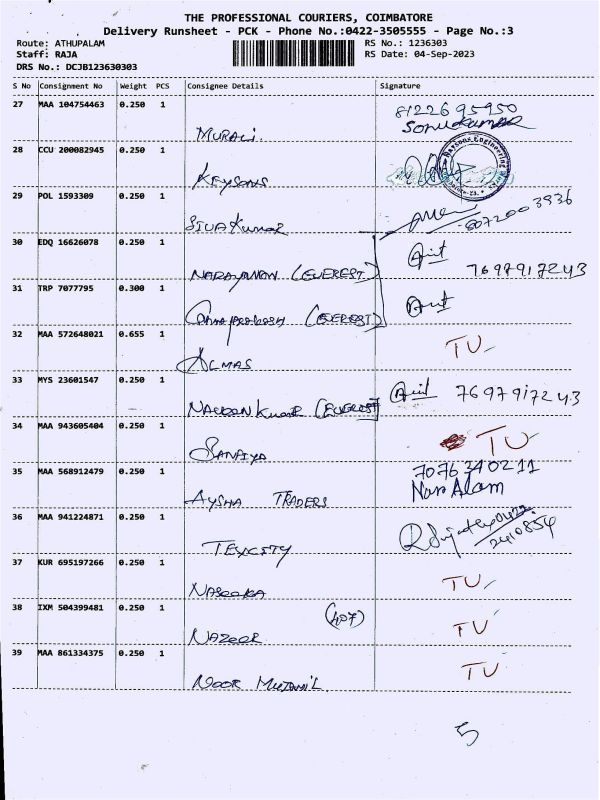 THE PROFESSIONAL COURIERS, COIMBATORE
Delivery Runsheet - PCK - Phone No.:0422-3505555 - Page No.:3
Route: ATHUPALAM RS No.: 1236303
Staff: RAJA RS Date: 04-Sep-2023
DRS No.: DCJB123630303
S No Consignment No Weight PCS Consignee Details Signature
27 MAA 104754463 0.250 1 8122695950
MURALI. Sonukumar
28 CCU 200082945 0.250 1
KEYSONS
29 POL 1593309 0.250 1
SIVA Kumar 8072003936
30 EDQ 16626078 0.250 1
NARAYANAN (EVEREST) 7697917243
31 TRP 7077795 0.300 1
(EVEREST)
32 MAA 572648021 0.655 1 TU
ALMAS
33 MYS 23601547 0.250 1 7697917243
Kumar (EVEREST)
34 MAA 943605404 0.250 1 TU
SANAIYA
35 MAA 568912479 0.250 1 7076340211
AYSHA TRADERS Nur Alam
36 MAA 941224871 0.250 1
TEXCITY 2410854
37 KUR 695197266 0.250 1 TU
NASEEKA
38 IXM 504399481 0.250 1 (407) TU
NAZEER
39 MAA 861334375 0.250 1 TU
NOOR
5